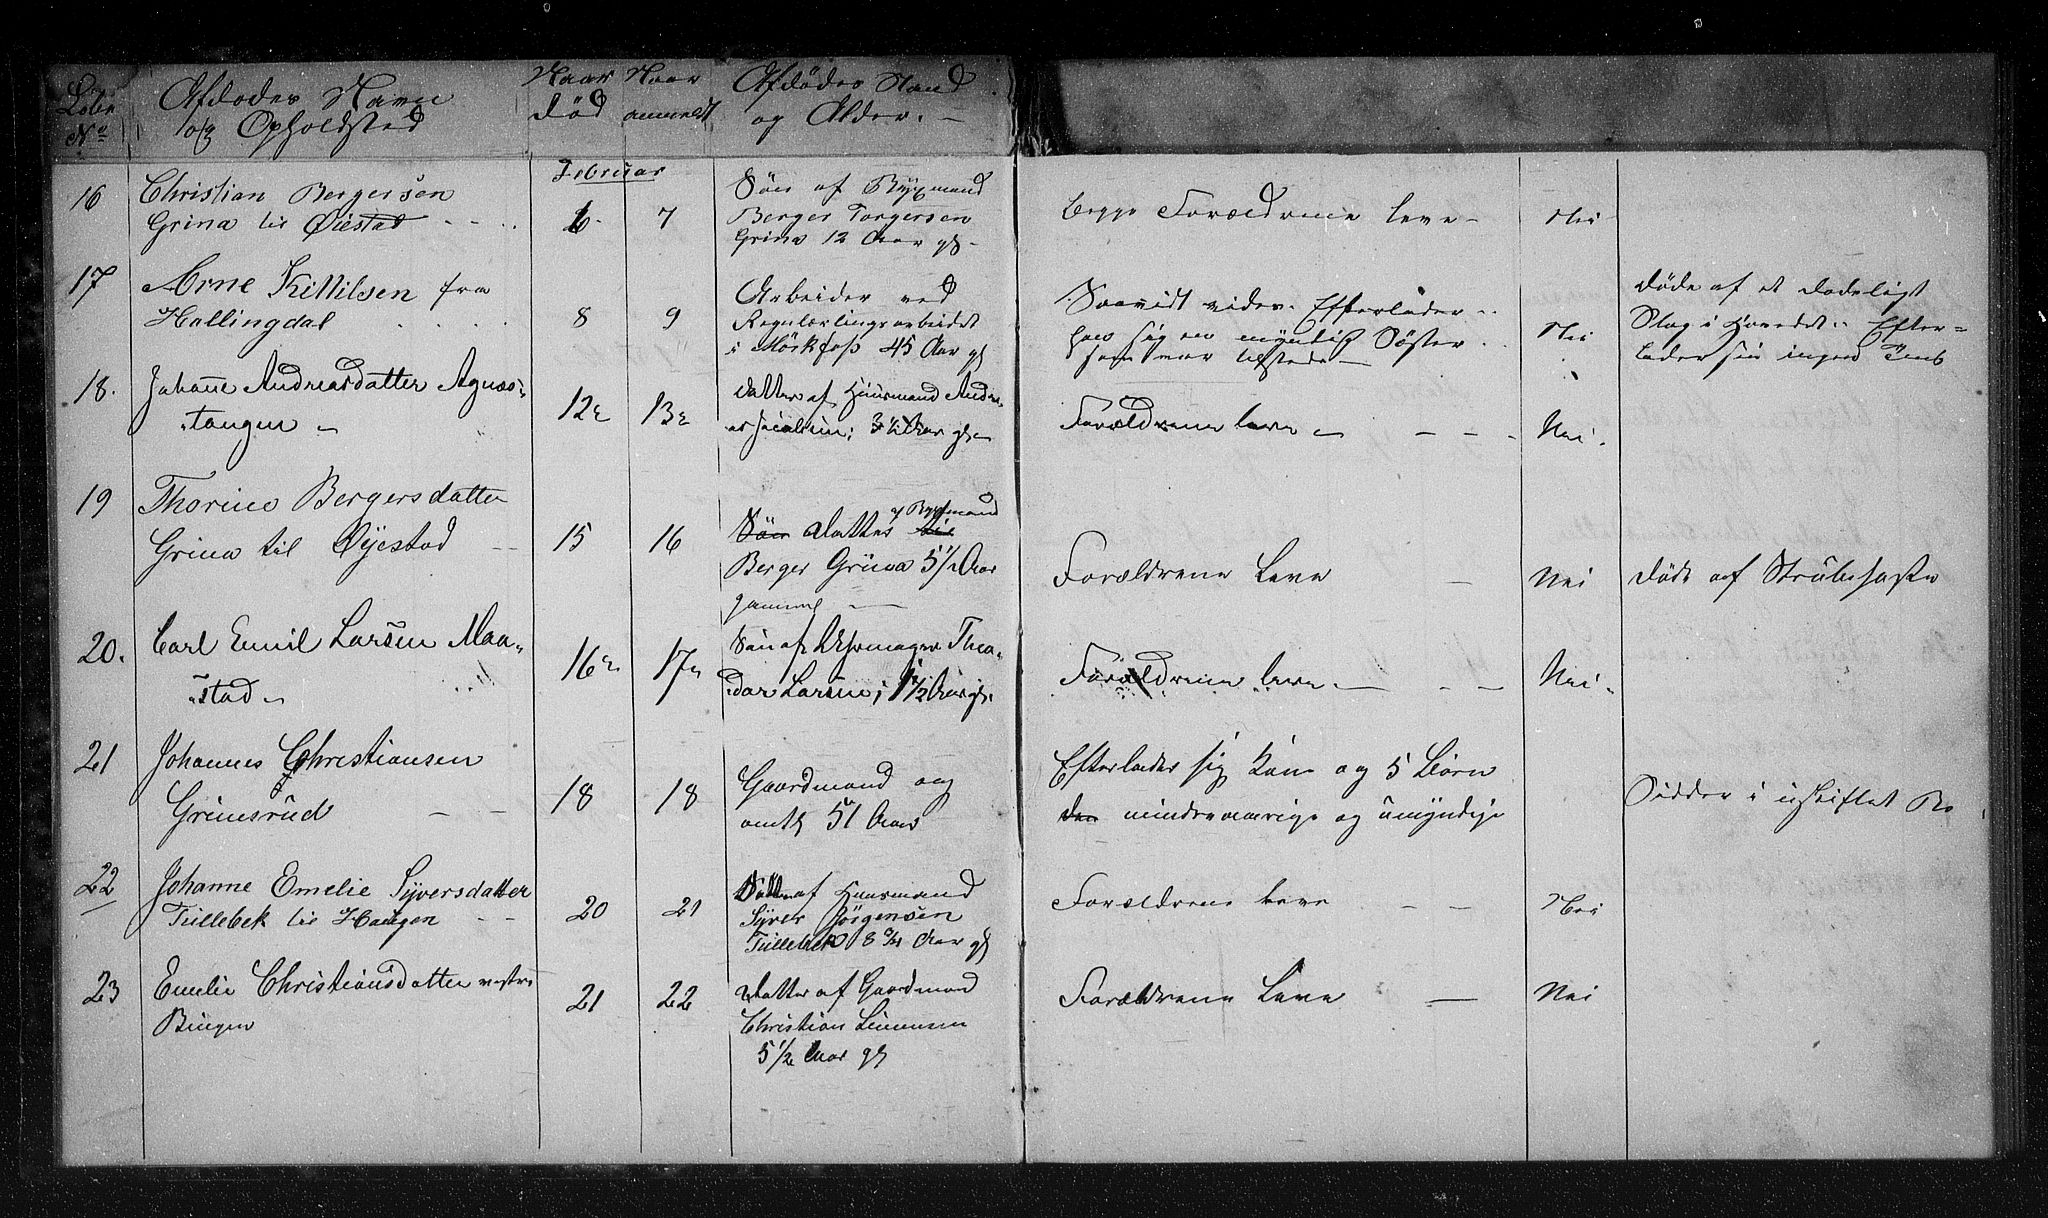 Løbe
No
Afdødes Navn
og Opholdsted
Naar
død
Naar
anmeldt
Afdødes Stand
og Alder. -
Februar
16
Christian Bergersen
Grina til Øiestad
6
7
Søn af Bygmand
Berger Torgersen
Grina 12 Aar gl -
Begge Forældrene leve -
Nei
17
Arne Kittilsen fra
Hallingdal
8
9
Arbeider ved
Regulæringsarbeidet
i Mörkfoss 45 Aar gl
Saavidt vides. Efterlader
han sig en myndig Søster
som var tilstede -
Nei
Døde af et dødeligt
Slag i Hovedet. Efter=
lader sin ingen
18.
Johanne Andreasdatter Agnæs-
tangen -
12
13
Datter af Huusmand Andre
as Jacobsen; 3 1/2 Aar gl -
Forældrene leve -
Nei.
19
Thorine Bergersdatter
Grina til Øyestad
15
16
Søn Datter af Bygmand
Berger Grina 5 1/2 Aar
gammel -
Forældrene Leve -
Nei
Døde af Strubehoste
20.
Carl Emil Larsen Maa-
stad -
16
17
Søn af Theo-
dor Larsen; 1 1/2 Aar gl.
Forældrene leve -
Nei.
21
Johannes Christiansen
Grimsrud
18
18
Gaardmand og
51 Aar
Efterlader sig Kone og 5 Börn
den mindreaarige og umyndige
Sidder i uskiftet Bo
22
Johanne Emelie Syversdatter
Tullebek til Haugen
20
21
Datter af Huusmand
Syver Jörgensen
Tullebek 8 3/4 Aar gl
Forældrene leve
Nei
23
Emelie Christiansdatter vestre
Bingen
21
22
Datter af Gaardmand
Christian Simensen
5 1/2 Aar gl
Forældrene Leve -
Nei